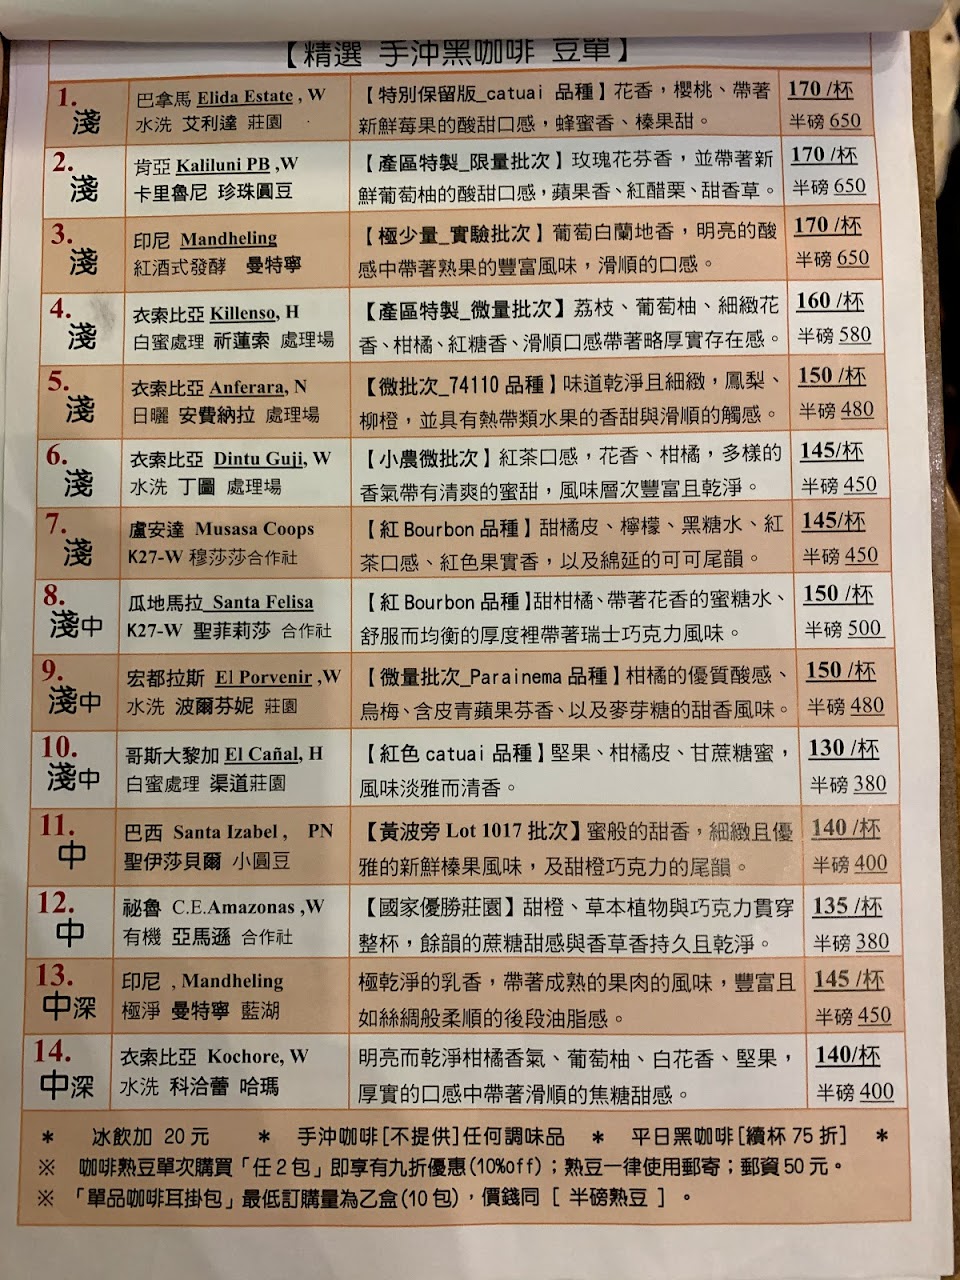 【精選 手沖黑咖啡 豆單】
1. 淺
巴拿馬 Elida Estate , W
水洗 艾利達 莊園
【特別保留版_catuai 品種】花香，櫻桃、帶著
新鮮莓果的酸甜口感，蜂蜜香、榛果甜。
170 /杯
半磅 650
2. 淺
肯亞 Kaliluni PB ,W
卡里魯尼 珍珠圓豆
【產區特製_限量批次】玫瑰花芬香，並帶著新
鮮葡萄柚的酸甜口感，蘋果香、紅醋栗、甜香草。
170 /杯
半磅 650
3. 淺
印尼 Mandheling
紅酒式發酵 曼特寧
【極少量_實驗批次】葡萄白蘭地香，明亮的酸
感中帶著熟果的豐富風味，滑順的口感。
170 /杯
半磅 650
4. 淺
衣索比亞 Killenso, H
白蜜處理 祈蓮索 處理場
【產區特製_微量批次】荔枝、葡萄柚、細緻花
香、柑橘、紅糖香、滑順口感帶著略厚實存在感。
160 /杯
半磅 580
5. 淺
衣索比亞 Anferara, N
日曬 安費納拉 處理場
【微批次_74110 品種】味道乾淨且細緻，鳳梨、
柳橙，並具有熱帶類水果的香甜與滑順的觸感。
150 /杯
半磅 480
6. 淺
衣索比亞 Dintu Guji, W
水洗 丁圖 處理場
【小農微批次】紅茶口感，花香、柑橘，多樣的
香氣帶有清爽的蜜甜，風味層次豐富且乾淨。
145/杯
半磅 450
7. 淺
盧安達 Musasa Coops
K27-W 穆莎莎合作社
【紅 Bourbon 品種】甜橘皮、檸檬、黑糖水、紅
茶口感、紅色果實香，以及綿延的可可尾韻。
145/杯
半磅 450
8. 淺中
瓜地馬拉 Santa Felisa
K27-W 聖菲莉莎 合作社
【紅 Bourbon 品種】甜柑橘、帶著花香的蜜糖水、
舒服而均衡的厚度裡帶著瑞士巧克力風味。
150 /杯
半磅 500
9. 淺中
宏都拉斯 El Porvenir ,W
水洗 波爾芬妮 莊園
【微量批次_Parainema 品種】柑橘的優質酸感、
烏梅、含皮青蘋果芬香、以及麥芽糖的甜香風味。
150 /杯
半磅 480
10. 淺中
哥斯大黎加 El Cañal, H
白蜜處理 渠道莊園
【紅色 catuai 品種】堅果、柑橘皮、甘蔗糖蜜，
風味淡雅而清香。
130 /杯
半磅 380
11. 中
巴西 Santa Izabel , PN
聖伊莎貝爾 小圓豆
【黃波旁 Lot 1017 批次】蜜般的甜香，細緻且優
雅的新鮮榛果風味，及甜橙巧克力的尾韻。
140 /杯
半磅 400
12. 中
祕魯 C.E.Amazonas ,W
有機 亞馬遜 合作社
【國家優勝莊園】甜橙、草本植物與巧克力貫穿
整杯，餘韻的蔗糖甜感與香草香持久且乾淨。
135 /杯
半磅 380
13. 中深
印尼 , Mandheling
極淨 曼特寧 藍湖
極乾淨的乳香，帶著成熟的果肉的風味，豐富且
如絲綢般柔順的後段油脂感。
145 /杯
半磅 450
14. 中深
衣索比亞 Kochore, W
水洗 科洽蕾 哈瑪
明亮而乾淨柑橘香氣、葡萄柚、白花香、堅果，
厚實的口感中帶著滑順的焦糖甜感。
140/杯
半磅 400
* 冰飲加 20 元 * 手沖咖啡[不提供]任何調味品 * 平日黑咖啡[續杯 75 折] *
※ 咖啡熟豆單次購買「任 2 包」即享有九折優惠(10%off)；熟豆一律使用郵寄；郵資 50 元。
※ 「單品咖啡耳掛包」最低訂購量為乙盒(10 包)，價錢同 [ 半磅熟豆 ] 。